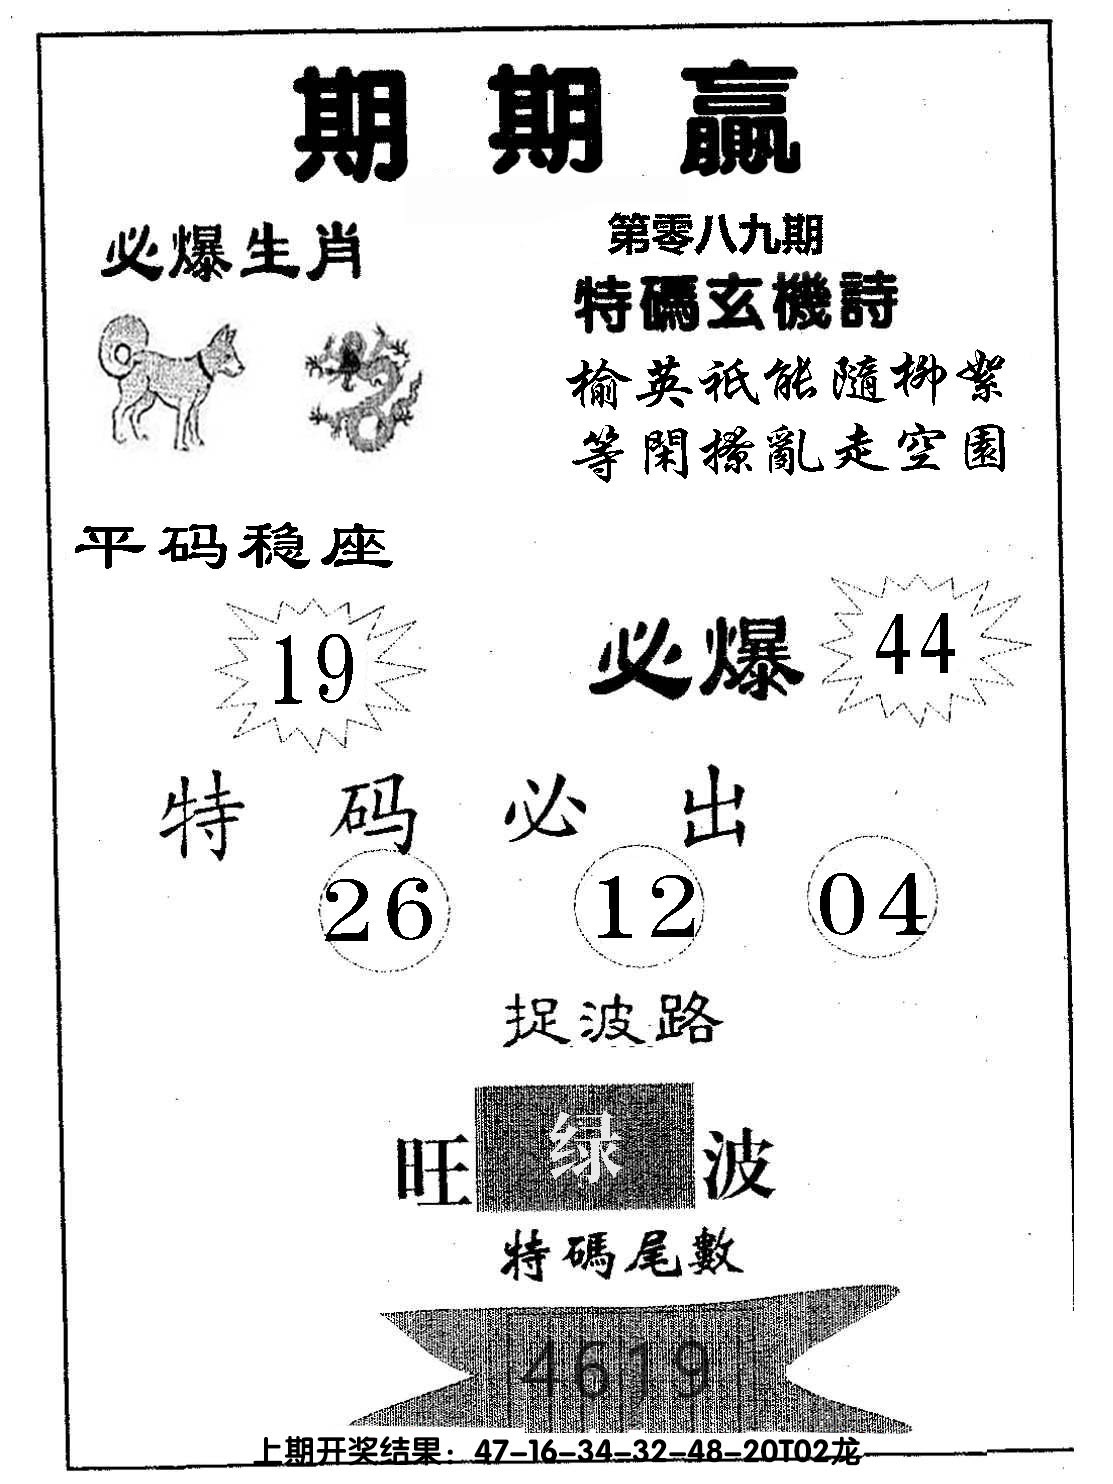 期期赢
必爆生肖
第零八九期
特碼玄機詩
榆英祇能隨柳絮
等閑撩亂走空園
平码稳座
19
必爆
44
特码必出
26 12 04
捉波路
旺 绿 波
特碼尾數
4619
上期开奖结果：47-16-34-32-48-20T02龙